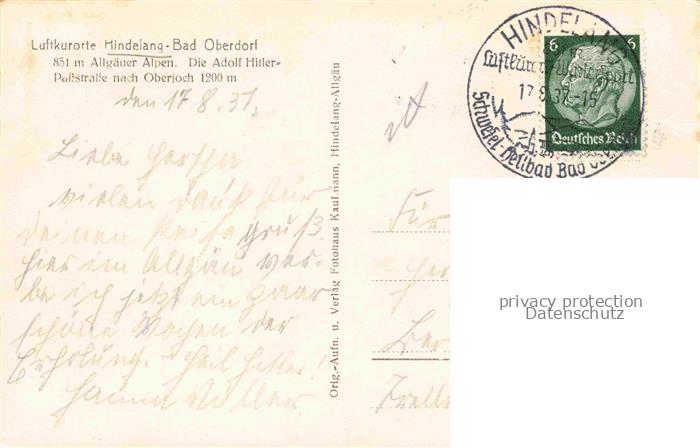 Luftkurorte Hindelang-Bad Oberdorf
851 m Allgäuer Alpen. Die Adolf Hitler-
Paßstraße nach Oberjoch 1200 m
den 17.8.37.
Liebe Hertha
vielen Dank für
deinen Reisegruß.
hier im Allgäu ver-
be ich jetzt ein paar
schöne Wochen der
Erholung. Heil Hitler!
Hanna
Orig.-Aufn. u. Verlag Fotohaus Kaufmann, Hindelang-Allgäu
HINDELANG
Luftkurort Wintersport
17.8.37.-15
Schwefel-Heilbad Bad
6 6
Deutsches Reich
Für
privacy protection
Datenschutz